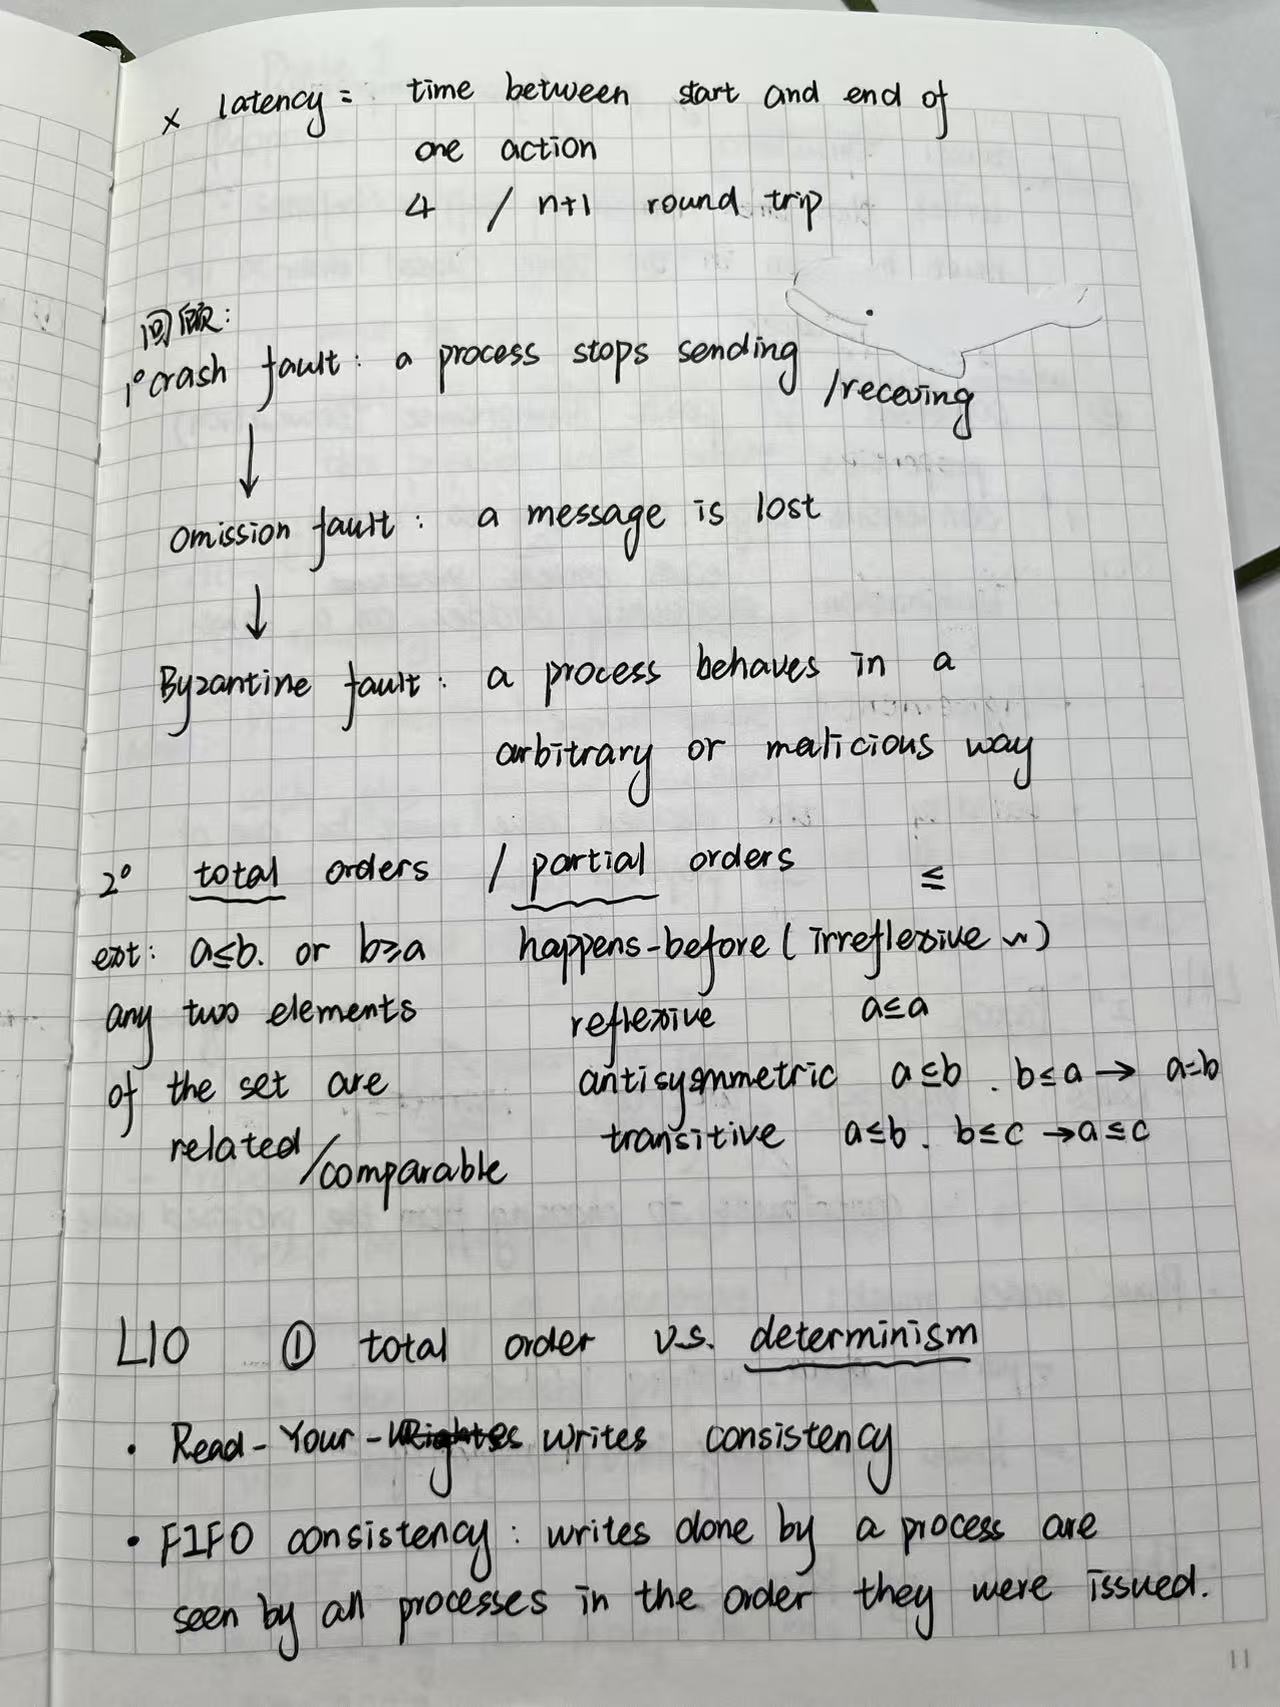 × latency = time between start and end of
one action
4 / n+1 round trip
回顾:
1° crash fault: a process stops sending
/receving
↓
omission fault: a message is lost
↓
Byzantine fault: a process behaves in a
arbitrary or malicious way
2° total orders / partial orders ≤
ext: a≤b. or b≥a happens-before (irreflexive ~)
any two elements reflexive a≤a
of the set are antisymmetric a≤b. b≤a → a=b
related/comparable transitive a≤b. b≤c → a≤c
L10 ① total order v.s. determinism
• Read-Your-writes consistency
• FIFO consistency: writes done by a process are
seen by all processes in the order they were issued.
11